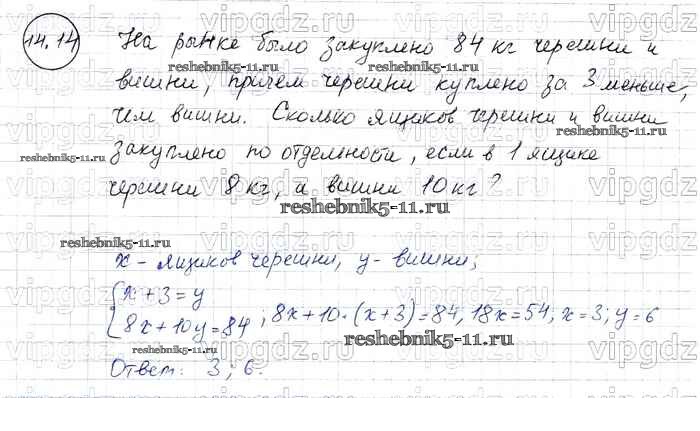 14.14 На рынке было закуплено 84 кг черешни и
вишни, причем черешни куплено на 3 меньше,
чем вишни. Сколько ящиков черешни и вишни
закуплено по отдельности, если в 1 ящике
черешни 8 кг, а вишни 10 кг?
reshebnik5-11.ru
reshebnik5-11.ru
reshebnik5-11.ru
reshebnik5-11.ru
reshebnik5-11.ru
reshebnik5-11.ru
x - ящиков черешни, y - вишни;
x + 3 = y
8x + 10y = 84 ; 8x + 10·(x + 3) = 84, 18x = 54, x = 3; y = 6
reshebnik5-11.ru
reshebnik5-11.ru
Ответ: 3; 6.
vipgdz